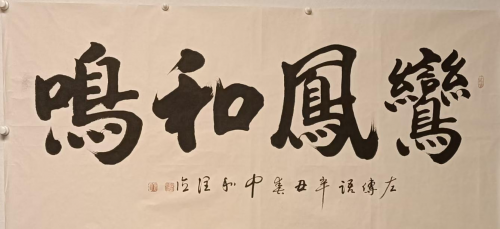 鸞鳳和鳴
左傳語辛丑
中和